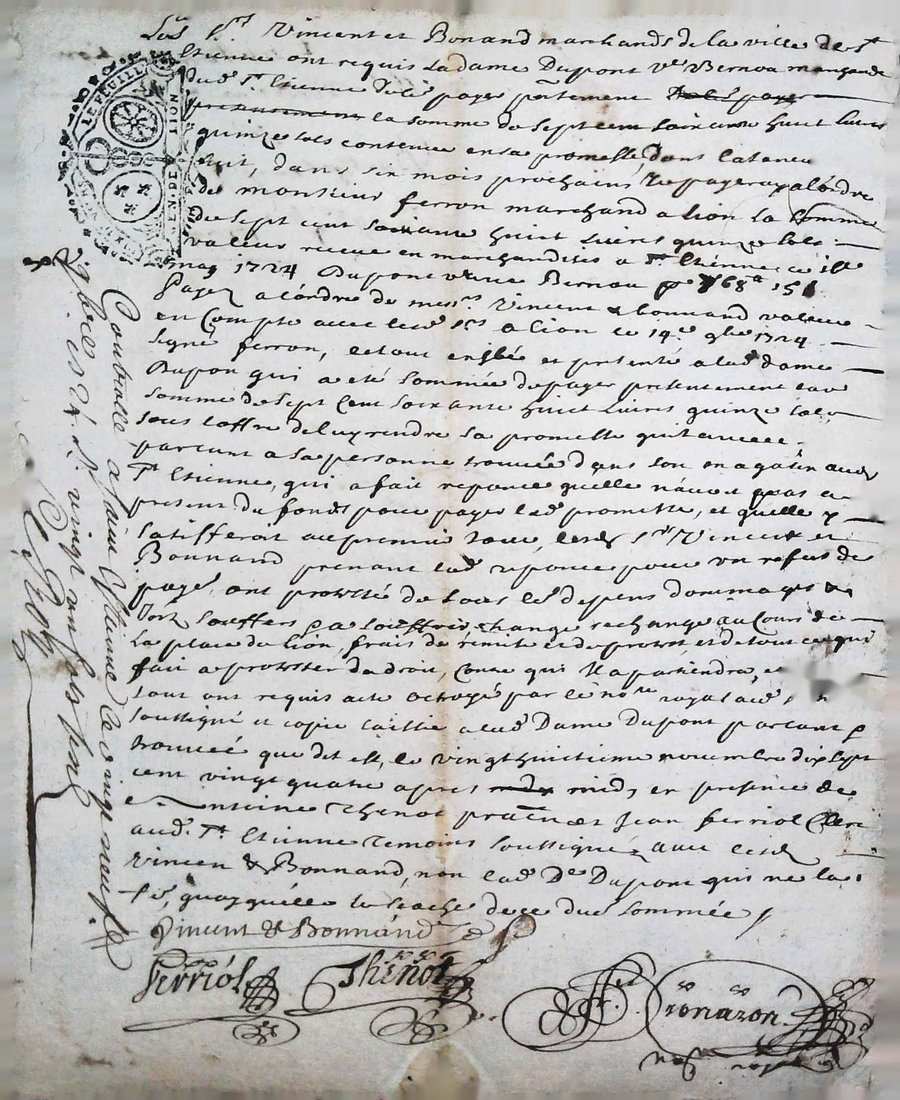 Les Srs Vincent et Bonand marchands de la ville de St
Etienne ont requis La dame Dupont ve Bernou marchande
aud. St. Etienne de les payer pntement
la somme de sept cent soixante huit livres
quinze sols contenue en sa promesse dont la teneur
suit, dans six mois prochains Je payeray a l'ordre
de monsieur ferron marchand a lion la somme
de sept cent soixante huit livres quinze sols
valeur receue en marchandises a St. Etienne ce
may 1724 Dupont veuve Bernou pr 768 # 15 s
Payez a l'ordre de mesrs. Vincent & bonnand valeur
en Compte avec lesd. srs a lion ce 14e. 9bre 1724
signé ferron, et presenté a lad dame
Dupon qui a eté sommée de payer presentement lad
somme de sept Cent soixante huit livres quinze sols
sous l'offre de luy rendre sa promesse quitancée
parlant a sa personne trouvée dans son magasin aud
St Etienne, qui a fait reponce quelle n'avoit pas a
present du fonds pour payer lad promesse, et quelle y
satisferoit au premier Jour, lesd Srs Vincent et
Bonnand prenant lad reponce pour un refus de
payer, ont protesté de tous les depens dommages &
souffers et a souffrir, change rechange au Cours de
la place de lion, frais de remise et de protest et de tout ce qui
fait a protester de droit, Contre qui Il apartiendra, et
tout ont requis acte octroyé par le nore royal aud
soussigné et copie laissée a lad Dame Dupont parlant
trouvée que dit est, le vingt huitieme novembre dix sept
cent vingt quatre apres midy en presence de
Antoine Thenot praticien et Jean ferriol Clerc
aud. St Etienne temoins soussignez avec lesd
Vincen & Bonnand, non lad De Dupont qui ne la
fit, quoyquelle le scache de ce due sommée /
Vincent & Bonnand
Ferriol Thenot
Ronazon
nore royal
LE FEUILLE
EN. DE LION
Controllé a saint Estienne le vingt neuf
9bre 1724 vingt un sols